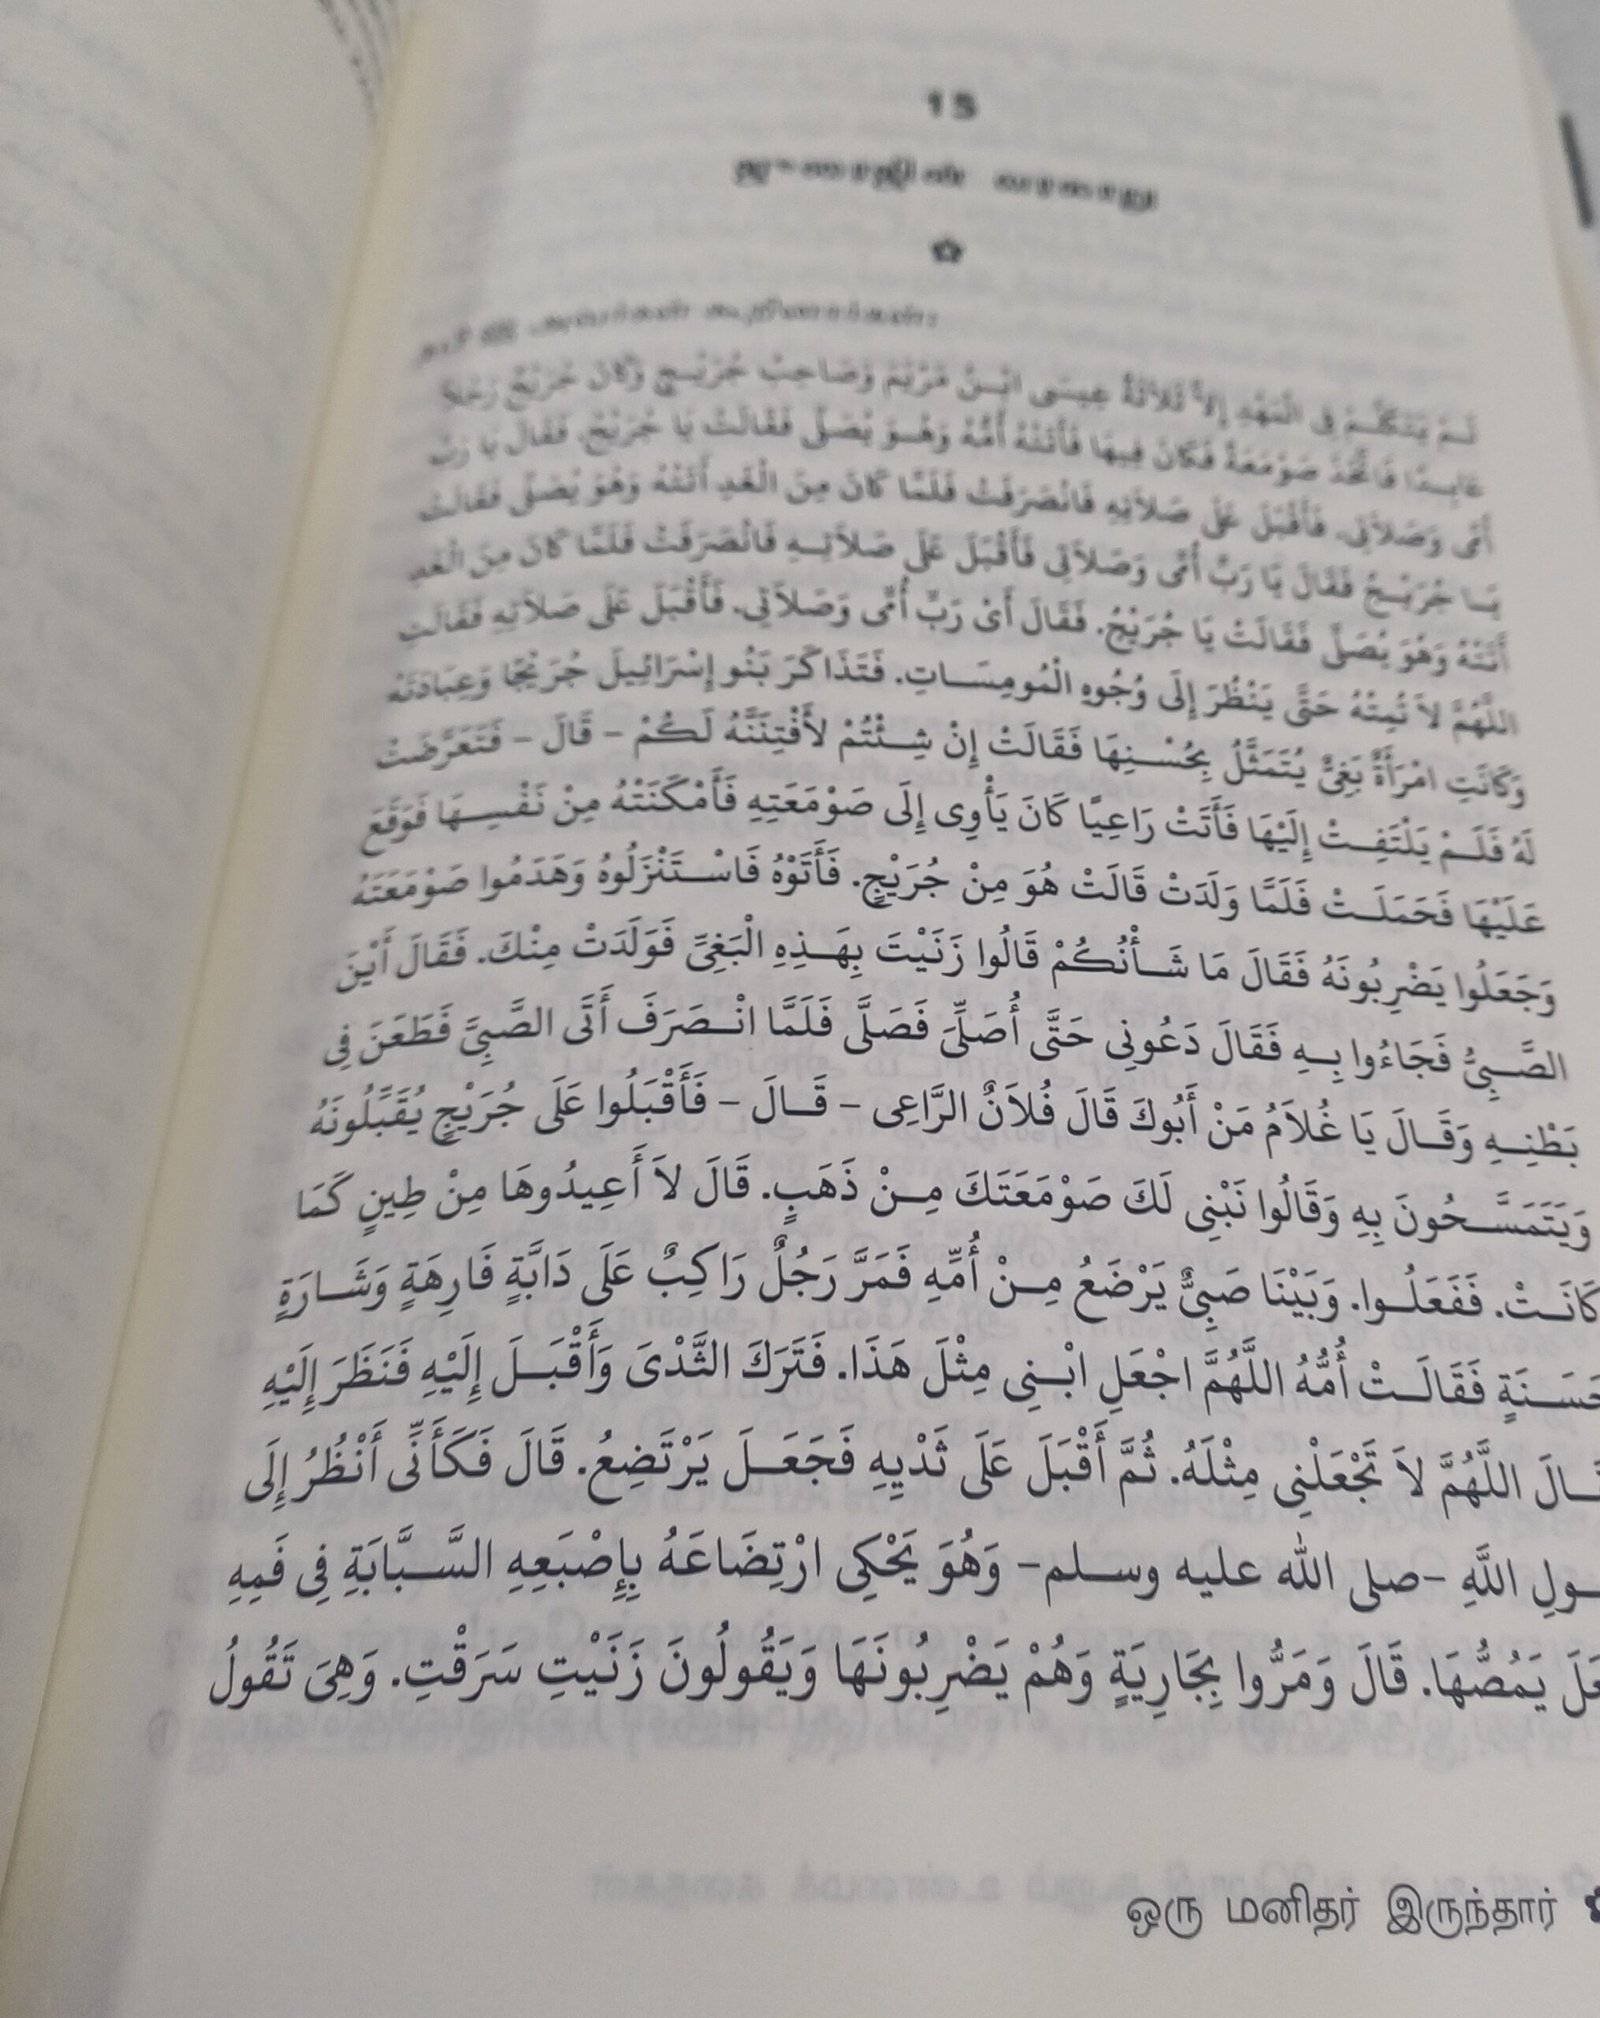 15
லَمْ يَتَكَلَّمْ فِي الْمَهْدِ إِلاَّ ثَلاَثَةٌ عِيسَى ابْنُ مَرْيَمَ وَصَاحِبُ جُرَيْجٍ وَكَانَ جُرَيْجٌ رَجُلاً
عَابِدًا فَاتَّخَذَ صَوْمَعَةً فَكَانَ فِيهَا فَأَتَتْهُ أُمُّهُ وَهُوَ يُصَلِّى فَقَالَتْ يَا جُرَيْجُ. فَقَالَ يَا رَبِّ
أُمِّى وَصَلاَتِى. فَأَقْبَلَ عَلَى صَلاَتِهِ فَانْصَرَفَتْ فَلَمَّا كَانَ مِنَ الْغَدِ أَتَتْهُ وَهُوَ يُصَلِّى فَقَالَتْ
يَا جُرَيْجُ فَقَالَ يَا رَبِّ أُمِّى وَصَلاَتِى فَأَقْبَلَ عَلَى صَلاَتِهِ فَانْصَرَفَتْ فَلَمَّا كَانَ مِنَ الْغَدِ
أَتَتْهُ وَهُوَ يُصَلِّى فَقَالَتْ يَا جُرَيْجُ. فَقَالَ أَىْ رَبِّ أُمِّى وَصَلاَتِى. فَأَقْبَلَ عَلَى صَلاَتِهِ فَقَالَتِ
اللَّهُمَّ لاَ تُمِتْهُ حَتَّى يَنْظُرَ إِلَى وُجُوهِ الْمُومِسَاتِ. فَتَذَاكَرَ بَنُو إِسْرَائِيلَ جُرَيْجًا وَعِبَادَتَهُ
وَكَانَتِ امْرَأَةٌ بَغِىٌّ يُتَمَثَّلُ بِحُسْنِهَا فَقَالَتْ إِنْ شِئْتُمْ لأَفْتِنَنَّهُ لَكُمْ – قَالَ – فَتَعَرَّضَتْ
لَهُ فَلَمْ يَلْتَفِتْ إِلَيْهَا فَأَتَتْ رَاعِيًا كَانَ يَأْوِى إِلَى صَوْمَعَتِهِ فَأَمْكَنَتْهُ مِنْ نَفْسِهَا فَوَقَعَ
عَلَيْهَا فَحَمَلَتْ فَلَمَّا وَلَدَتْ قَالَتْ هُوَ مِنْ جُرَيْجٍ. فَأَتَوْهُ فَاسْتَنْزَلُوهُ وَهَدَمُوا صَوْمَعَتَهُ
وَجَعَلُوا يَضْرِبُونَهُ فَقَالَ مَا شَأْنُكُمْ قَالُوا زَنَيْتَ بِهَذِهِ الْبَغِىِّ فَوَلَدَتْ مِنْكَ. فَقَالَ أَيْنَ
الصَّبِىُّ فَجَاءُوا بِهِ فَقَالَ دَعُونِى حَتَّى أُصَلِّىَ فَصَلَّى فَلَمَّا انْصَرَفَ أَتَى الصَّبِىَّ فَطَعَنَ فِى
بَطْنِهِ وَقَالَ يَا غُلاَمُ مَنْ أَبُوكَ قَالَ فُلاَنٌ الرَّاعِى – قَالَ – فَأَقْبَلُوا عَلَى جُرَيْجٍ يُقَبِّلُونَهُ
وَيَتَمَسَّحُونَ بِهِ وَقَالُوا نَبْنِى لَكَ صَوْمَعَتَكَ مِنْ ذَهَبٍ. قَالَ لاَ أَعِيدُوهَا مِنْ طِينٍ كَمَا
كَانَتْ. فَفَعَلُوا. وَبَيْنَا صَبِىٌّ يَرْضَعُ مِنْ أُمِّهِ فَمَرَّ رَجُلٌ رَاكِبٌ عَلَى دَابَّةٍ فَارِهَةٍ وَشَارَةٍ
حَسَنَةٍ فَقَالَتْ أُمُّهُ اللَّهُمَّ اجْعَلِ ابْنِى مِثْلَ هَذَا. فَتَرَكَ الثَّدْىَ وَأَقْبَلَ إِلَيْهِ فَنَظَرَ إِلَيْهِ
اللَّهُمَّ لاَ تَجْعَلْنِى مِثْلَهُ. ثُمَّ أَقْبَلَ عَلَى ثَدْيِهِ فَجَعَلَ يَرْتَضِعُ. قَالَ فَكَأَنِّى أَنْظُرُ إِلَى
اللَّهِ –صلى الله عليه وسلم– وَهُوَ يَحْكِى ارْتِضَاعَهُ بِإِصْبَعِهِ السَّبَّابَةِ فِى فَمِهِ
يَمُصُّهَا. قَالَ وَمَرُّوا بِجَارِيَةٍ وَهُمْ يَضْرِبُونَهَا وَيَقُولُونَ زَنَيْتِ سَرَقْتِ. وَهِىَ تَقُولُ
ஒரு மனிதர் இருந்தார்